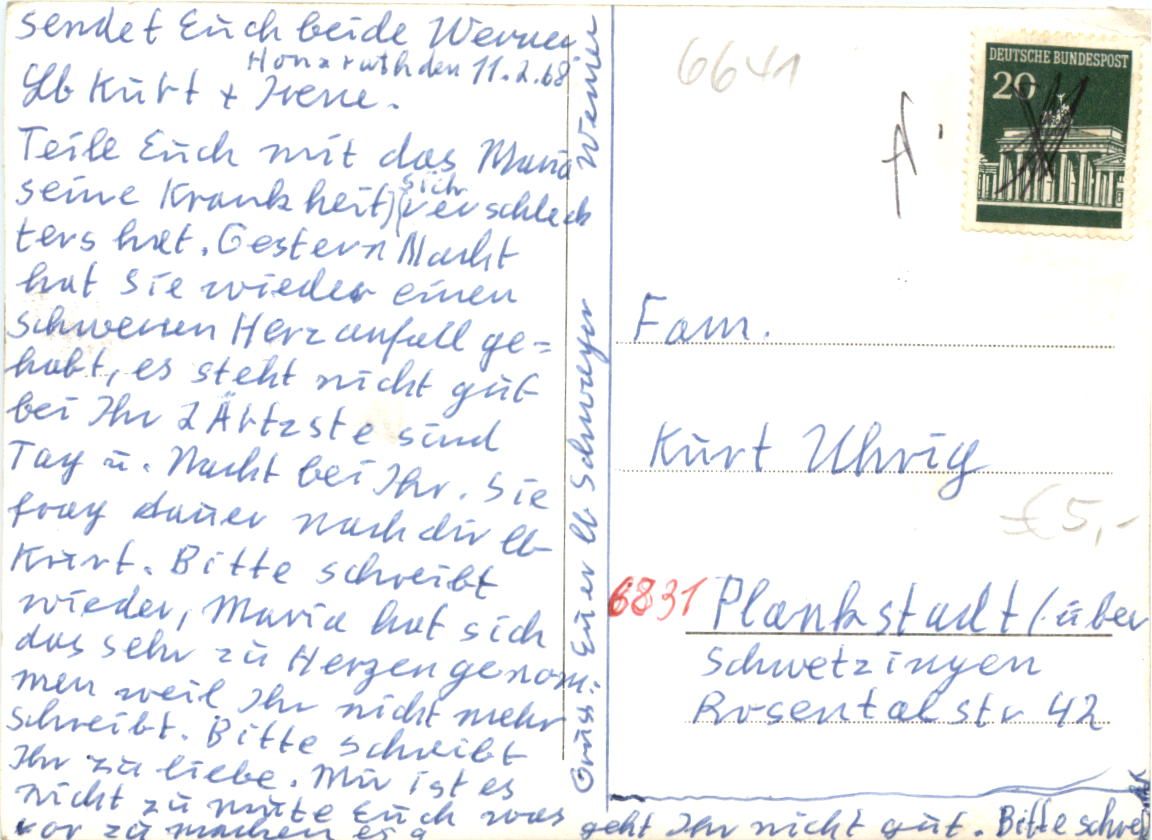 sendet Euch beide Werner
Honzrath den 11.2.68
Lb Kurt + Irene.
Teile Euch mit das Maria
seine Krankheit) (sich verschlech
ters hat. Gestern Nacht
hat Sie wieder einen
schweren Herzanfall ge=
habt, es steht nicht gut
bei Ihr 2 Ärtzste sind
Tag u. Nacht bei Ihr. Sie
frag dauer nach dir lb
Kurt. Bitte schreibt
wieder, Maria hat sich
das sehr zu Herzen genom:
men weil Ihr nicht mehr
schreibt. Bitte schreibt
Ihr zu liebe. Mir ist es
nicht zu mute Euch was
vor zu machen es
geht Ihr nicht gut. Bitte schrei
Gruss Euer lb Schwager Werner
6641
DEUTSCHE BUNDESPOST
20
Fam.
Kurt Uhrig
€ 5,-
6831 Plankstadt / über
Schwetzingen
Rosentalstr 42